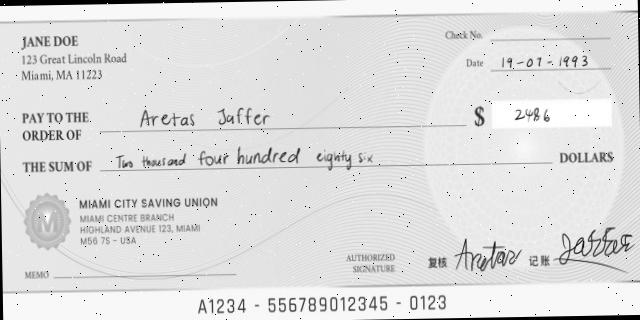 JANE DOE
123 Great Lincoln Road
Miami, MA 11223
Check No.
Date 19-07-1993
PAY TO THE
ORDER OF Aretas Jaffer $ 2486
THE SUM OF Two thousand four hundred eighty six DOLLARS
MIAMI CITY SAVING UNION
MIAMI CENTRE BRANCH
HIGHLAND AVENUE 123, MIAMI
M56 7S - USA
MEMO
AUTHORIZED
SIGNATURE
复核 Aretas 记账 Jaffer
A1234 - 556789012345 - 0123